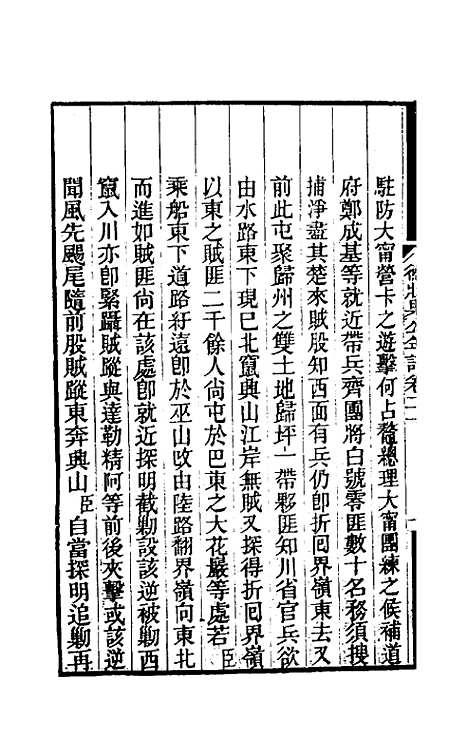 駐防大甯營卡之遊擊何占鰲總理大甯團練之候補道
府鄭成基等就近帶兵齊團將白號零匪數十名務須搜
捕淨盡其楚來賊股知西面有兵仍卽折囘界嶺東去又
前此屯聚歸州之雙土地歸坪一帶夥匪知川省官兵欲
由水路東下現已北竄興山江岸無賊又探得折囘界嶺
以東之賊匪二千餘人尙屯於巴東之大花嚴等處若臣
乘船東下道路紆遠卽於巫山改由陸路翻界嶺向東北
而進如賊匪尙在該處卽就近探明截勦設該逆被勦西
竄入川亦卽緊躡賊蹤與達勒精阿等前後夾擊或該逆
聞風先颺尾隨前股賊蹤東奔興山臣自當探明追勦再